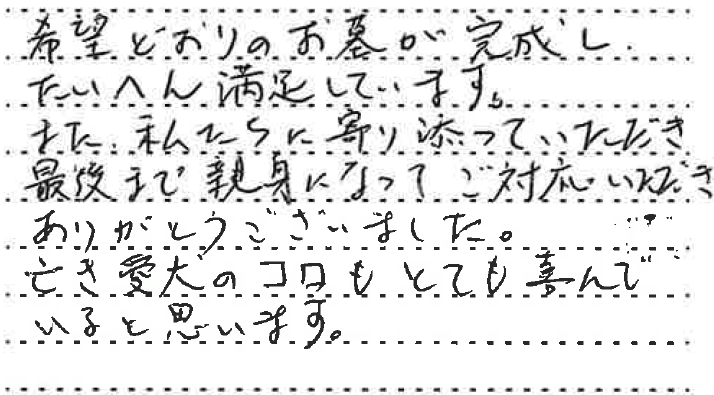 希望どおりのお墓が完成し、
たいへん満足しています。
また、私たちに寄り添っていただき
最後まで親身になってご対応いただき
ありがとうございました。
亡き愛犬のコロもとても喜んで
いると思います。